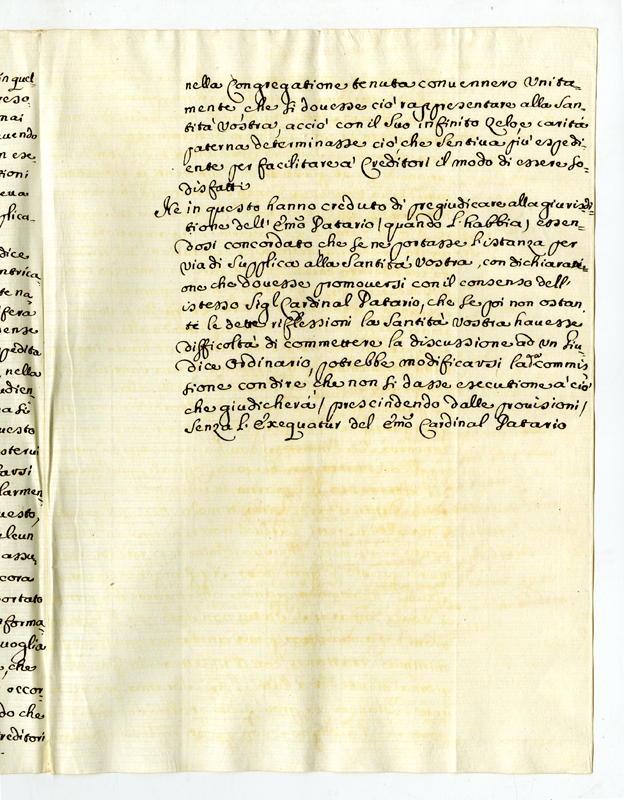 in quel
reso
mai
uendo
n ese
tioni
eua
plica
dice
ntrica
te na
ifera
sense
spedita
nella
udien
a si
uesto
oterui
arsi
larmen
uesto,
alcun
assu
cora
ortato
nforma
uoglia
, che
occor
do che
reditori
nella Congregatione tenuta conuennero Unita=
mente che si douesse ciò rappresentare alla San=
tità Vostra, acciò con il Suo infinito Zelo, e carità
paterna determinasse ciò che Sentiua più espedi=
ente per facilitare a' Creditori il modo di essere so=
disfatti
Ne in questo hanno creduto di pregiudicare alla giurisdi=
tione dell' Emo Datario (quando l' habbia) essen=
dosi concordato che se ne portasse l' istanza per
via di Supplica alla Santità Vostra, con dichiarati=
one che douesse promouersi con il consenso dell'
istesso Sigl Cardinal Datario, che se poi non ostan
te le dette riflessioni la Santità Vostra hauesse
difficoltà di commettere la discussione ad un Giu=
dice Ordinario, potrebbe modificarsi la commis
sione con dire, che non si dasse esecutione a ciò
che giudicherà (prescindendo dalle prouisioni)
senza l' Exequatur del Emo Cardinal Datario